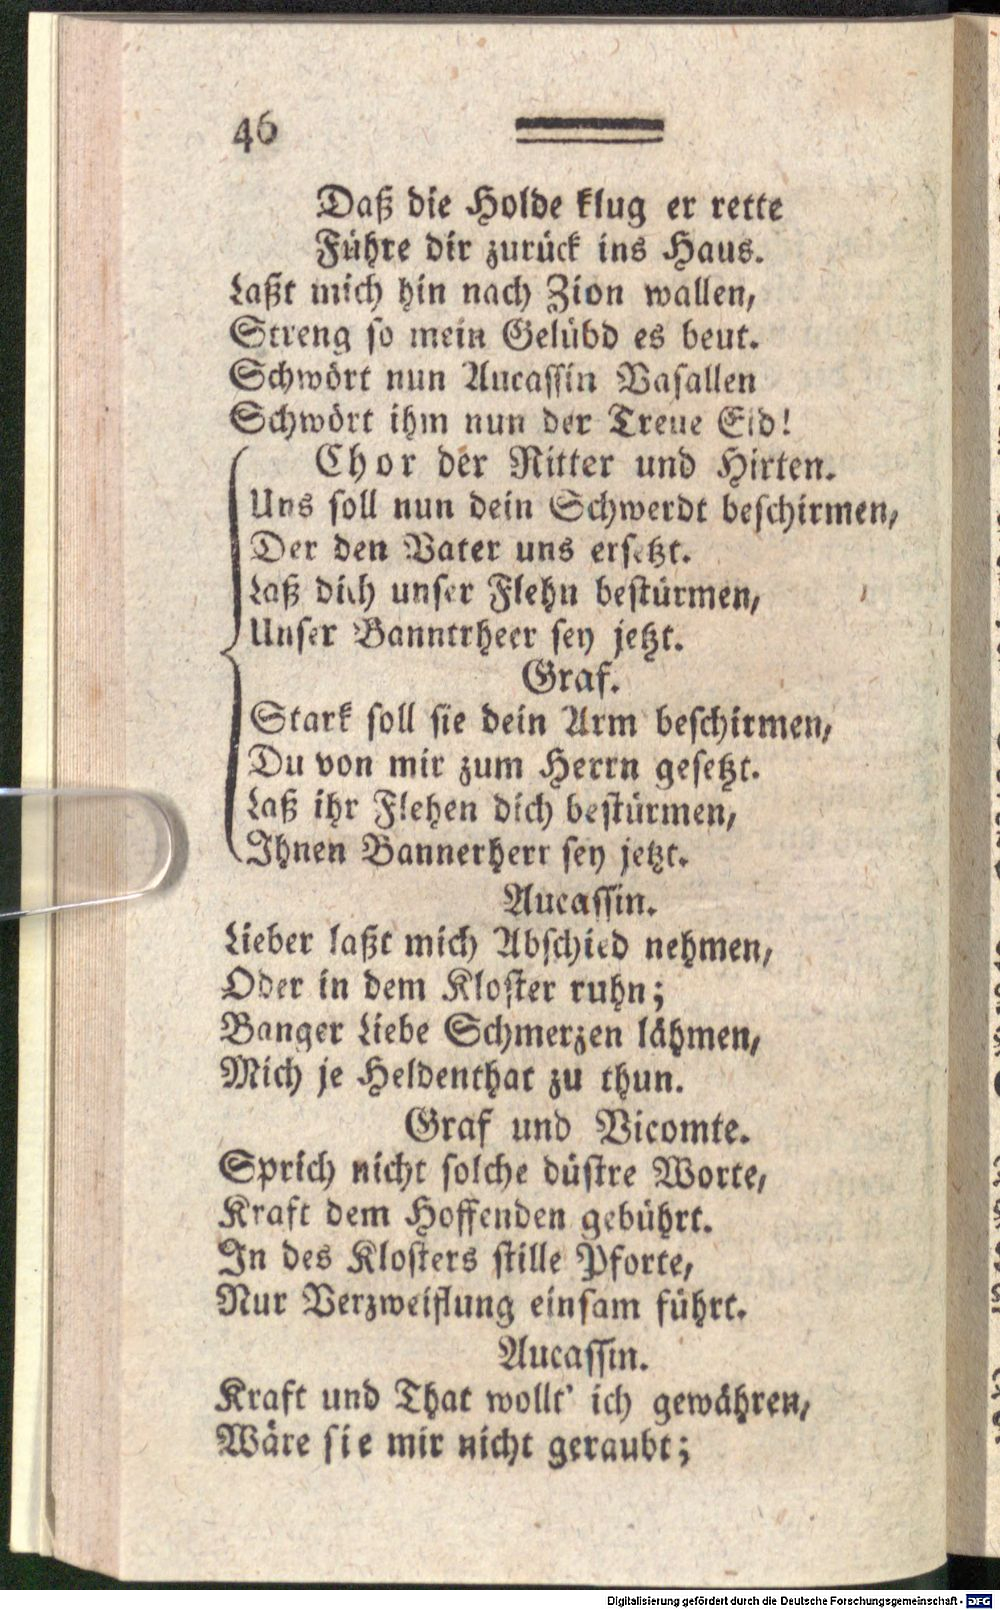 46
Daß die Holde klug er rette
Führe dir zurück ins Haus.
Laßt mich hin nach Zion wallen,
Streng so mein Gelübd es beut.
Schwört nun Aucassin Vasallen
Schwört ihm nun der Treue Eid!
Chor der Ritter und Hirten.
Uns soll nun dein Schwerdt beschirmen,
Der den Vater uns ersetzt.
Laß dich unser Flehn bestürmen,
Unser Bannerheer sey jetzt.
Graf.
Stark soll sie dein Arm beschirmen,
Du von mir zum Herrn gesetzt.
Laß ihr Flehen dich bestürmen,
Ihnen Bannerherr sey jetzt.
Aucassin.
Lieber laßt mich Abschied nehmen,
Oder in dem Kloster ruhn;
Banger Liebe Schmerzen lähmen,
Mich je Heldenthat zu thun.
Graf und Vicomte.
Sprich nicht solche düstre Worte,
Kraft dem Hoffenden gebührt.
In des Klosters stille Pforte,
Nur Verzweiflung einsam führt.
Aucassin.
Kraft und That wollt' ich gewähren,
Wäre sie mir nicht geraubt;
Digitalisierung gefördert durch die Deutsche Forschungsgemeinschaft - DFG